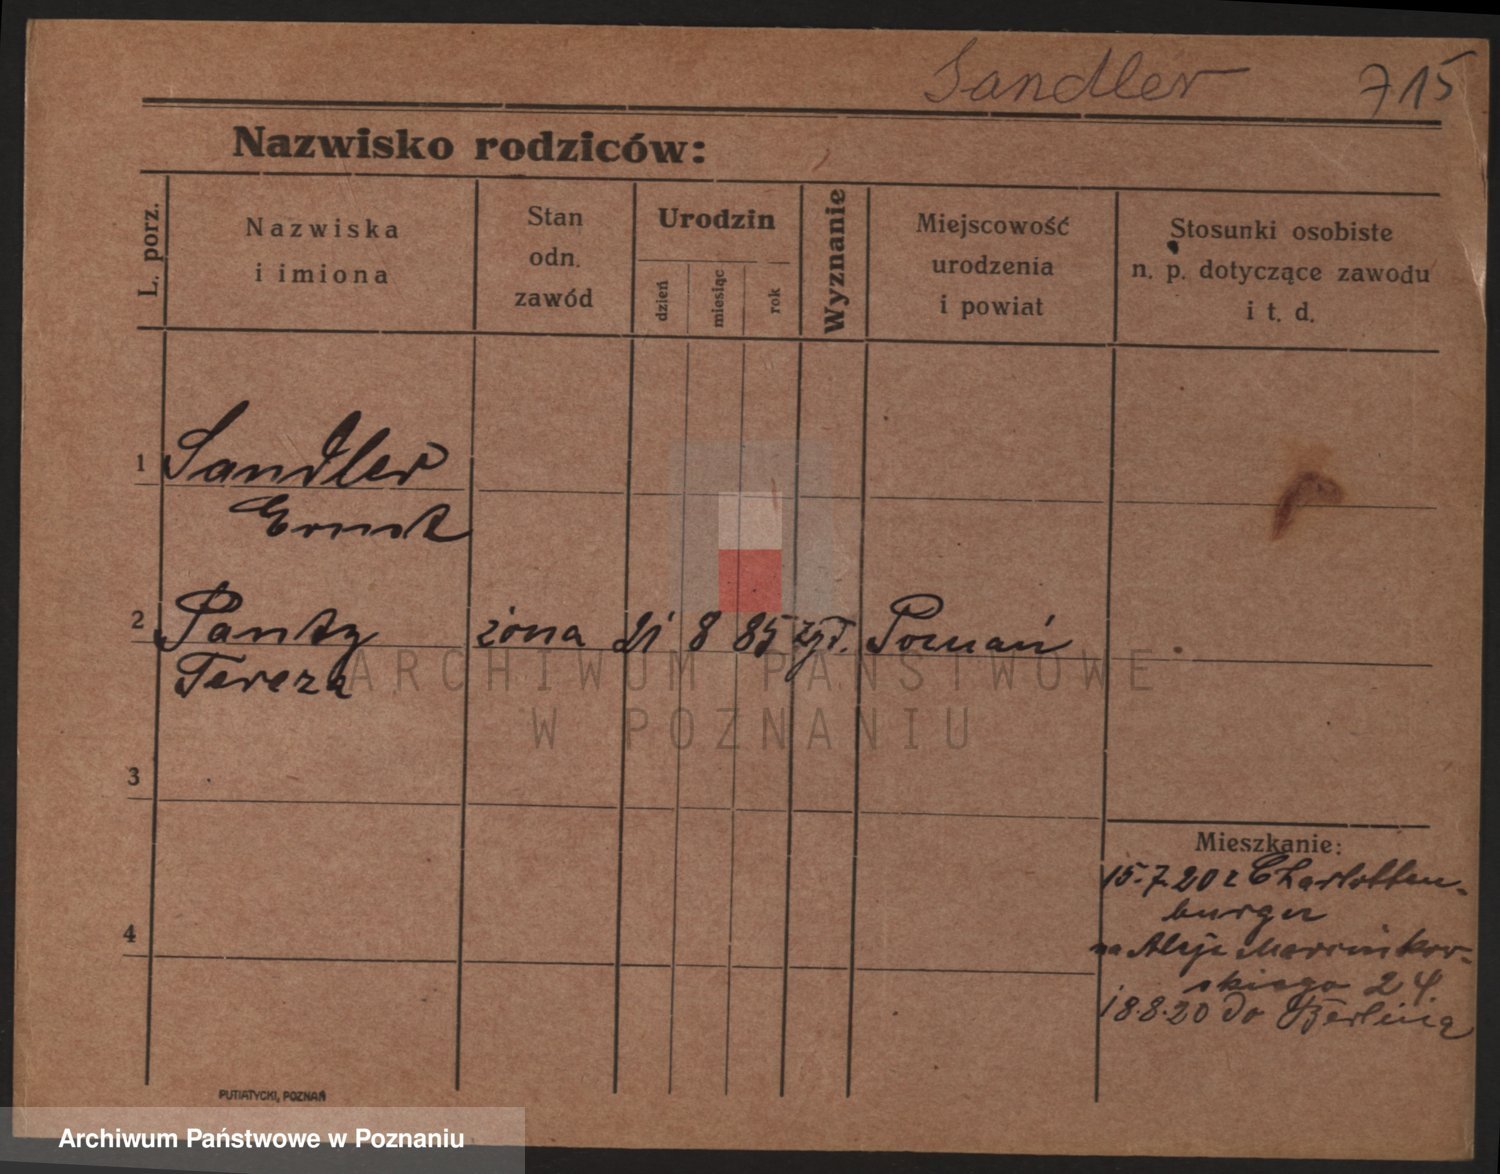 Sandler 715
Nazwisko rodziców:
L. porz.
Nazwiska
i imiona
Stan
odn.
zawód
Urodzin
dzień
miesiąc
rok
Wyznanie
Miejscowość
urodzenia
i powiat
Stosunki osobiste
n. p. dotyczące zawodu
i t. d.
1 Sandler
Ernst
2 żona 21 8 85 żyd. Poznań
Tereza
ARCHIWUM PAŃSTWOWE
W POZNANIU
3
Mieszkanie:
15.7.20 z Charlotten-
burga
4
na Aleje Marcinkow-
skiego 24.
18.8.20 do Berlina
PUTIATYCKI, POZNAŃ
Archiwum Państwowe w Poznaniu